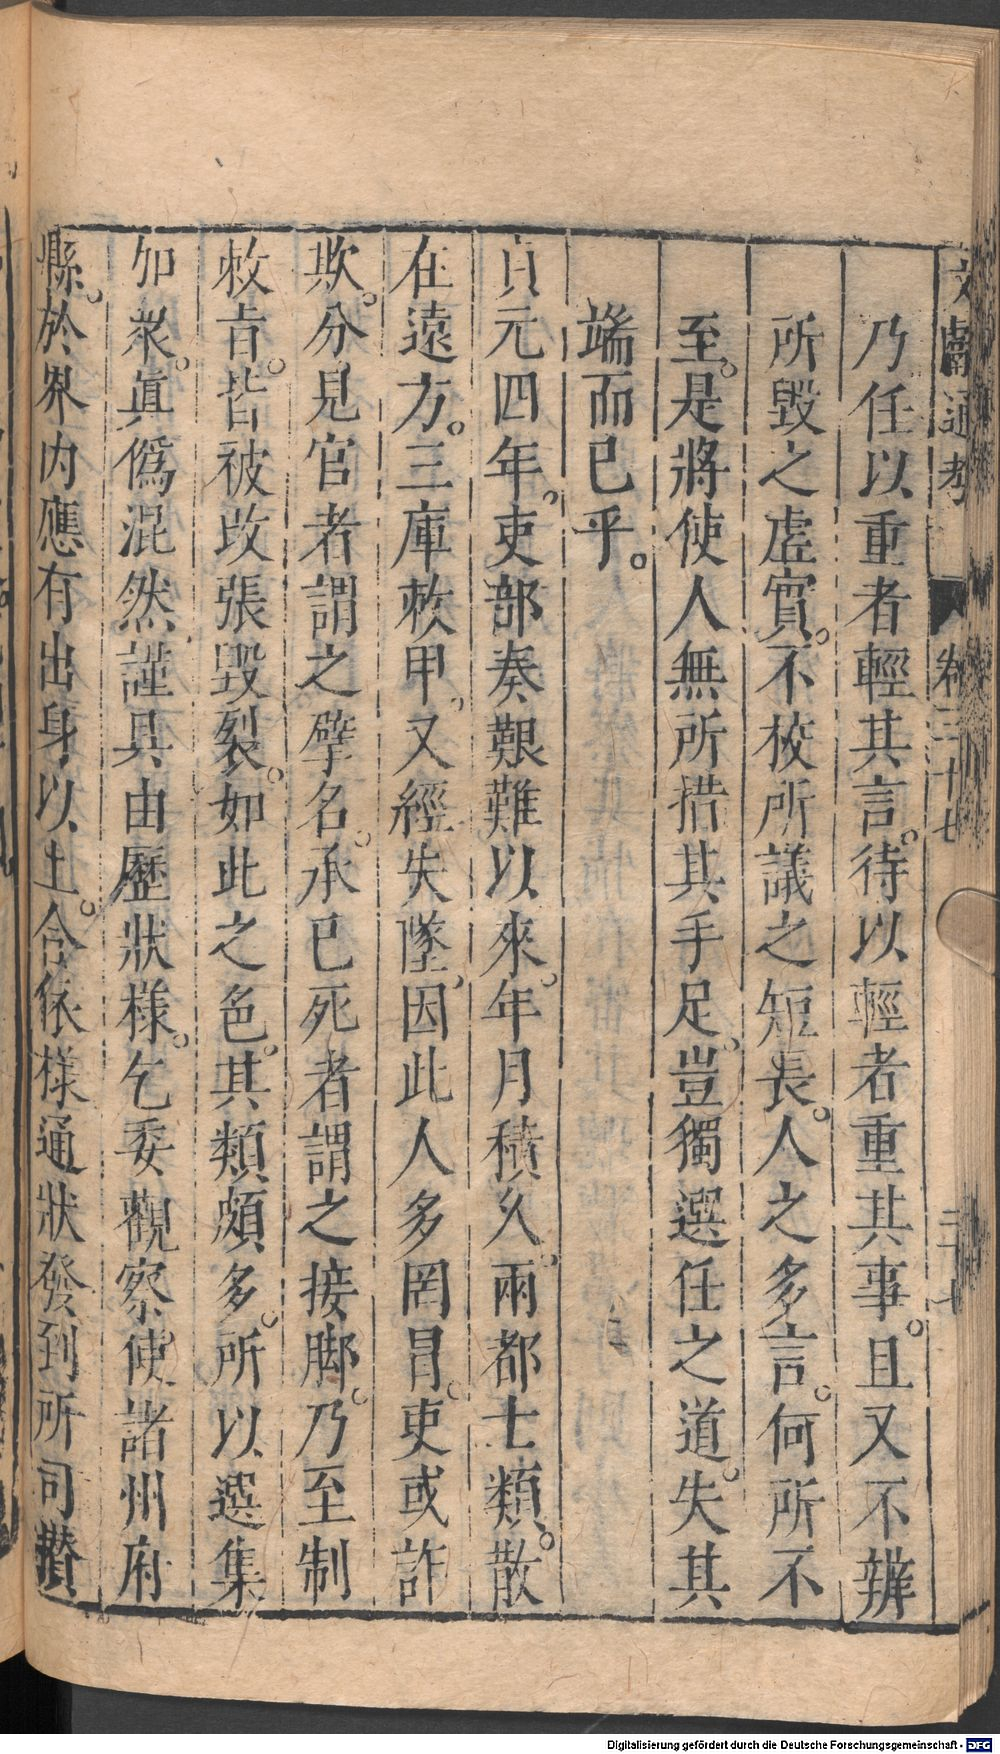 文獻通考 卷三十七 三十七
乃任以重者輕其言。待以輕者重其事。且又不辨
所毀之虛實。不校所議之短長。人之多言。何所不
至。是將使人無所措其手足。豈獨選任之道。失其
端而已乎。
貞元四年。吏部奏艱難以來。年月積久。兩都士類。散
在遠方。三庫敕甲。又經失墜。因此人多罔冒。吏或詐
欺。分見官者謂之擘名。承已死者謂之接脚。乃至制
敕旨。皆被改張毀裂。如此之色。其類頗多。所以選集
加衆。眞僞混然。謹具由歷狀樣。乞委觀察使諸州府
縣。於界內應有出身以上。令依樣通狀發到所司攢
Digitalisierung gefördert durch die Deutsche Forschungsgemeinschaft - DFG